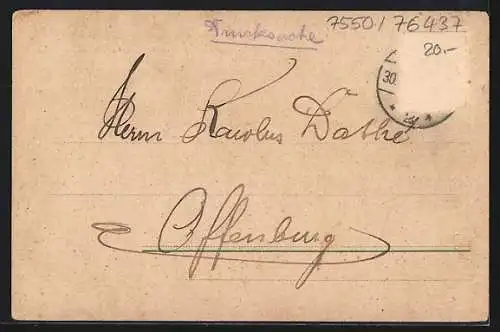 Drucksache
7550 / 76437
20.-
30.
Herrn Karolus Dathe
Offenburg